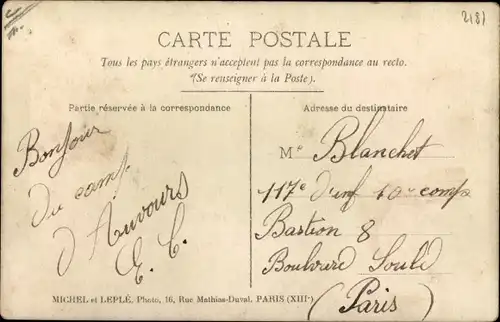 2131
CARTE POSTALE
Tous les pays étrangers n'acceptent pas la correspondance au recto.
(Se renseigner à la Poste).
Partie réservée à la correspondance
Bonjour
du camp
d'Auvours
E. C.
Adresse du destinataire
Mr Blanchet
117e d'inf 10e comp
Bastion 8
Boulvard Soult
(Paris)
MICHEL et LEPLÉ, Photo, 16, Rue Mathias-Duval, PARIS (XIIIe)